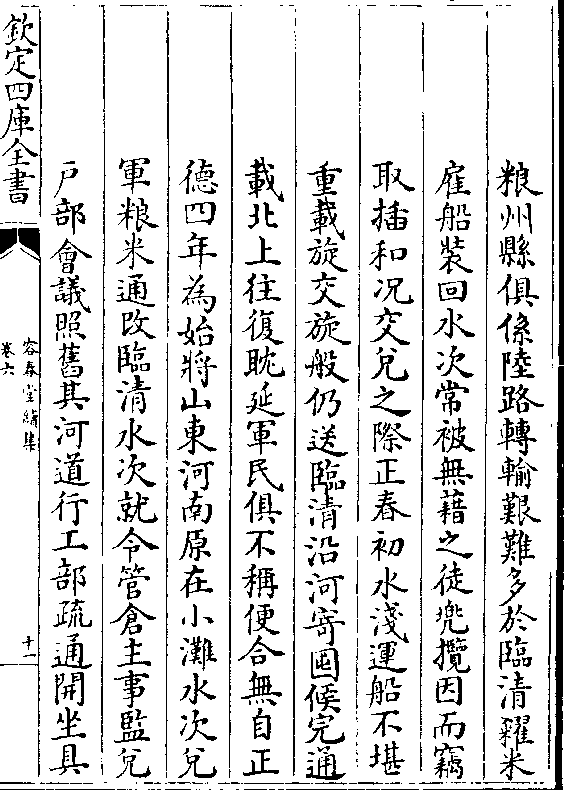 粮州縣俱係陸路轉輸艱難多於臨清糴米
雇船裝回水次常被無藉之徒兠攬因而竊
取揷和况交兌之際正春初水淺運船不堪
重載旋交旋般仍送臨清沿河寄囤候完通
載北上往復躭延軍民俱不稱便合無自正
德四年為始將山東河南原在小灘水次兌
軍粮米通改臨清水次就令管倉主事監兌
戶部會議照舊其河道行工部疏通開坐具
欽定四庫全書
容春堂續集
卷六
十一